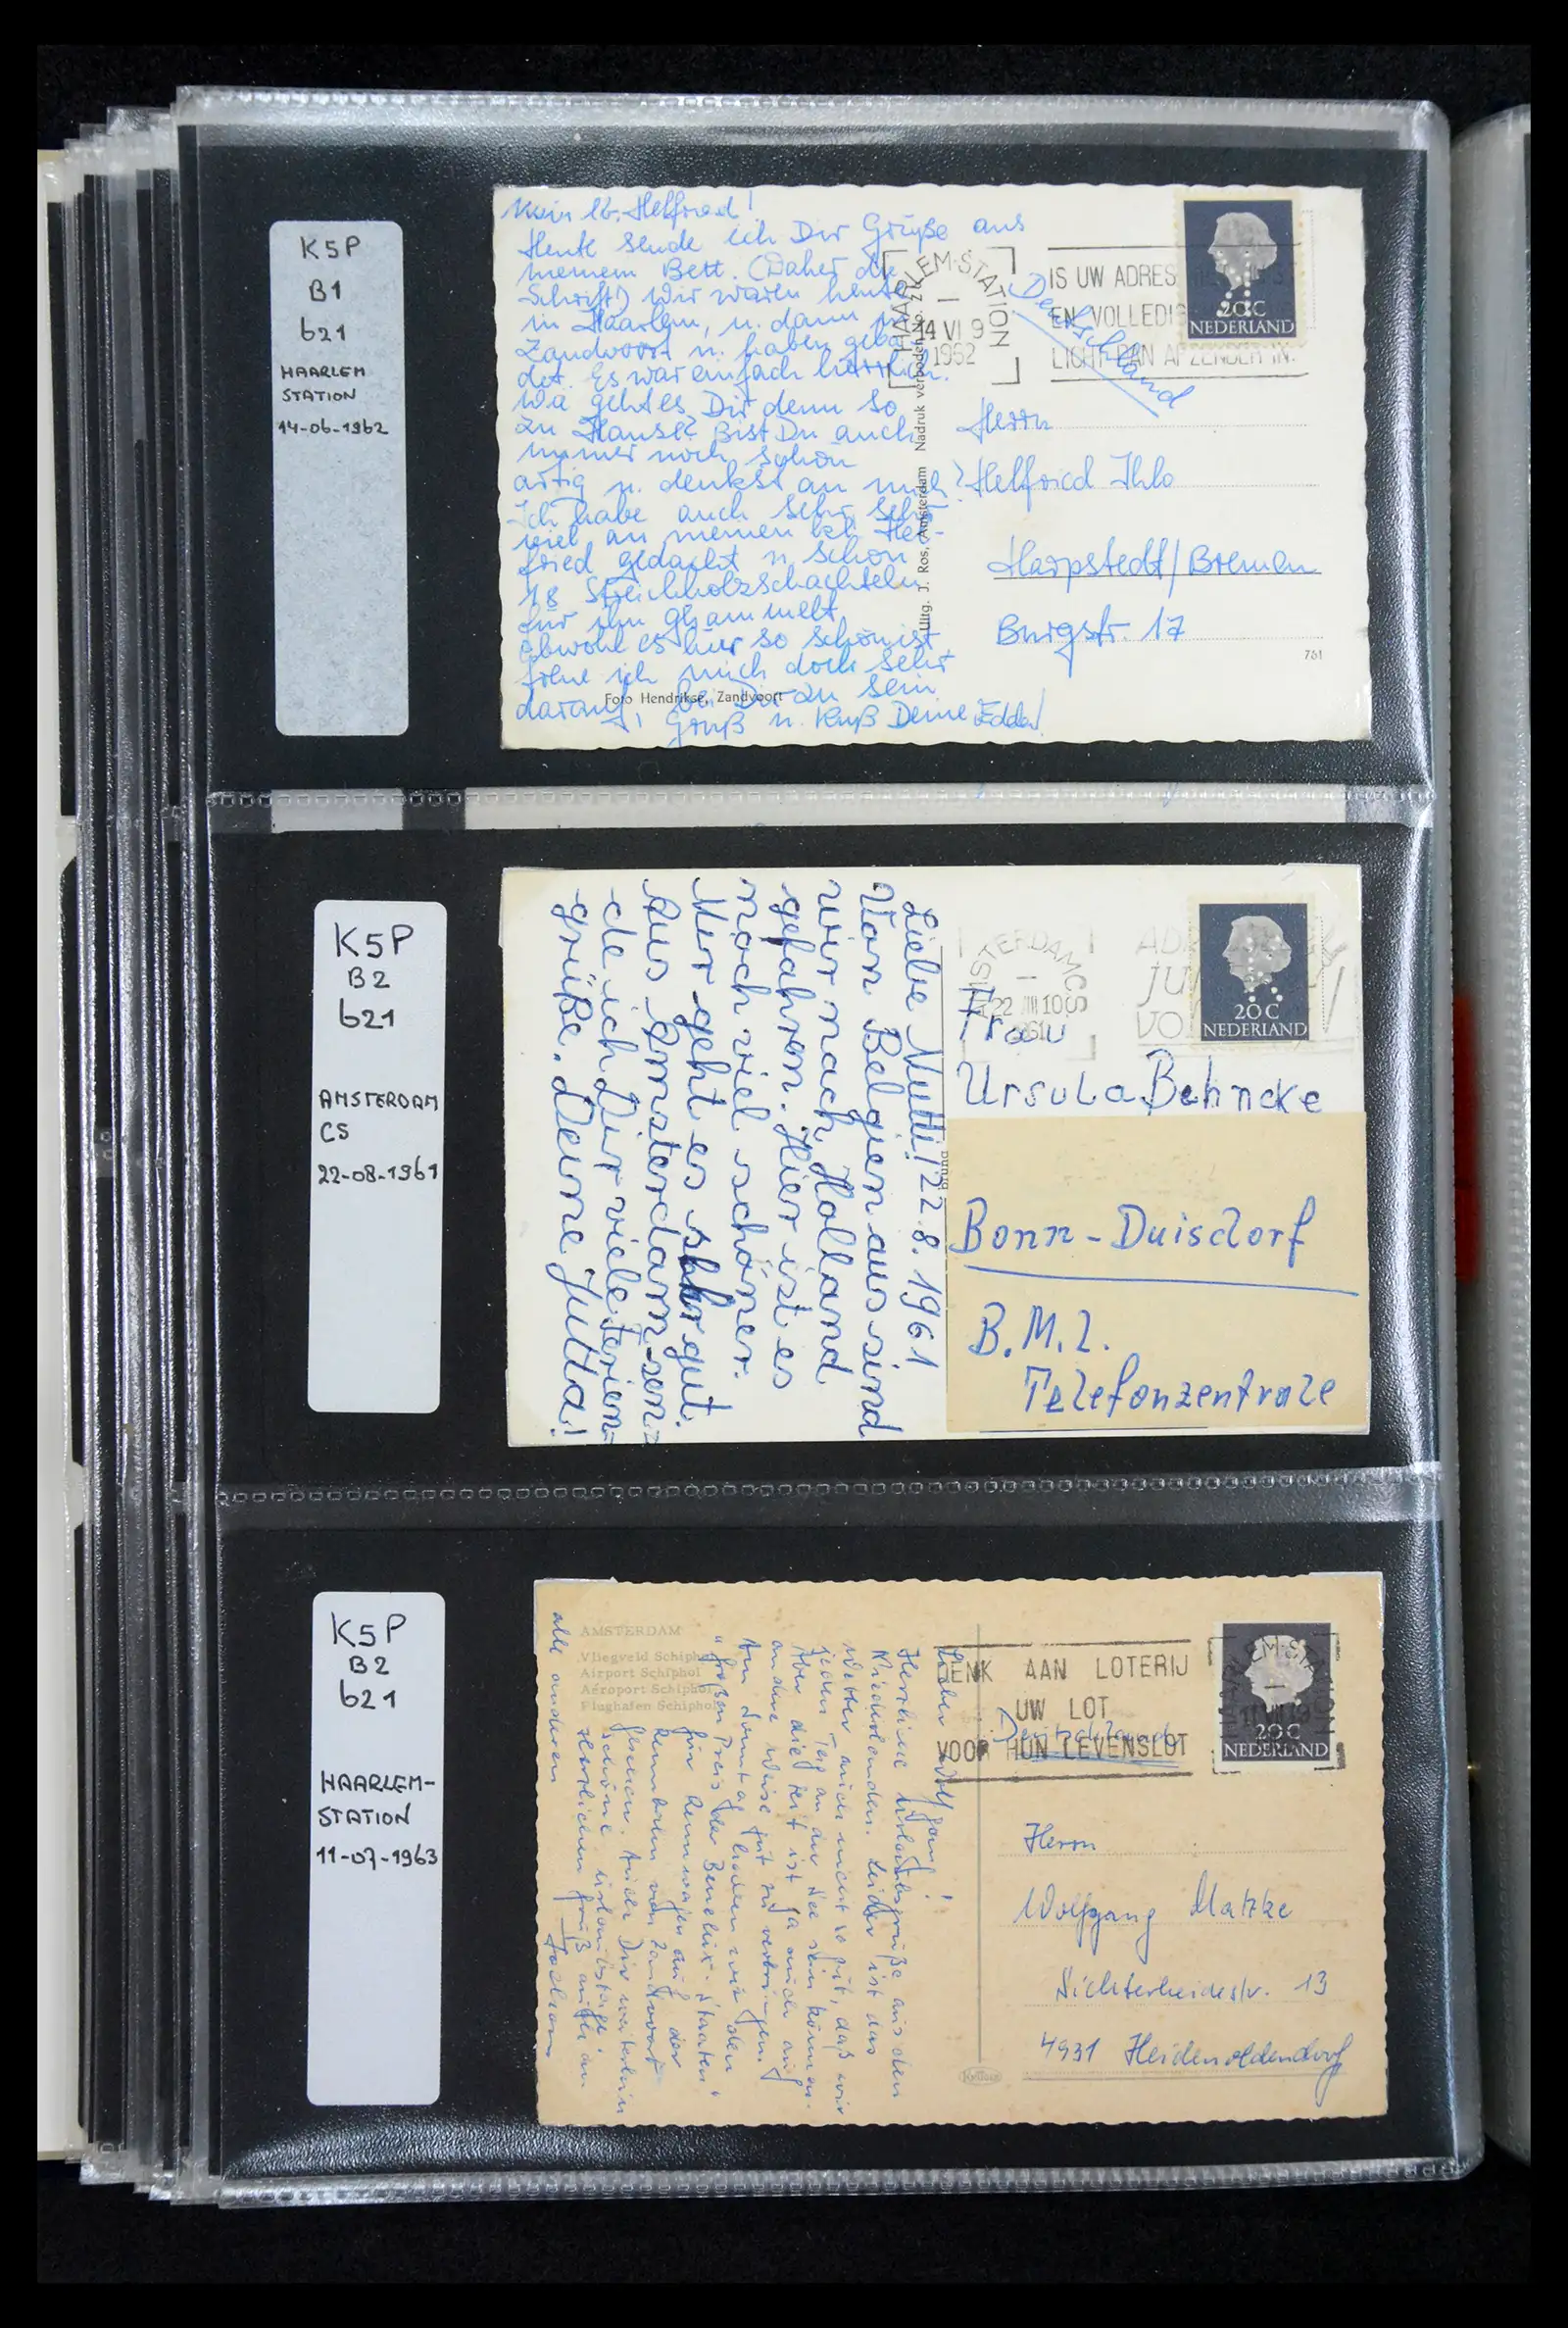 K5P
B1
b21
HAARLEM
STATION
14-06-1962
Mein lb. Helfried!
Heute sende ich Dir Grüße aus
meinem Bett. (Daher die
Schrift) Wir waren heute
in Haarlem, u. dann in
Zandvoort u. haben geba-
det. Es war einfach herrlich.
Wie geht es Dir denn so
zu Hause? Bist Du auch
immer noch schön
artig u. denkst an mich?
Ich habe auch sehr, sehr
viel an meinen kl. Hel-
fried gedacht u. schon
18 Streichholzschachteln
für ihn gesammelt.
Obwohl es hier so schön ist,
freue ich mich doch sehr
darauf, bei Dir zu sein.
Gruß u. Kuß Deine Edda!
Foto Hendrikse, Zandvoort
Uitg. J. Ros, Amsterdam Nadruk verboden No. Z
HAARLEM-STATION
14 VI 9
1962
IS UW ADRES
EN VOLLEDIG
LICHT DAN AFZENDER IN.
Deutschland
20C
NEDERLAND
Herrn
Helfried Ihlo
Harpstedt/Bremen
Burgstr. 17
761
K5P
B2
b21
AMSTERDAM
CS
22-08-1961
Liebe Mutti! 22.8.1961
Von Belgien aus sind
wir nach Holland
gefahren. Hier ist es
noch viel schöner.
Mir geht es sehr gut.
Aus Amsterdam sen=
de ich Dir viele Ferien=
grüße. Deine Jutta!
AMSTERDAM CS
22 VIII 10
1961
20C
NEDERLAND
Frau
Ursula Behncke
Bonn-Duisdorf
B.M.L.
Telefonzentrale
K5P
B2
b21
HAARLEM-
STATION
11-07-1963
AMSTERDAM
Vliegveld Schiphol
Airport Schiphol
Aéroport Schiphol
Flughafen Schiphol
Lieber Wolfgang!
Herzliche Urlaubsgrüße aus den
Niederlanden. Leider ist das
Wetter auch nicht so gut, daß wir
jeden Tag an der See sein können.
Aber die Zeit ist ja auch auf
andere Weise gut zu verbringen.
Am Sonntag haben wir den
"Großen Preis der Benelux-Staaten"
für Rennwagen auf der
Rennbahn von Zandvoort
gesehen. Auch Dir weiterhin
schöne Urlaubstage.
Herzlichen Gruß auch an
alle anderen
Jochen
DENK AAN LOTERIJ
UW LOT
VOOR HUN LEVENSLOT
Deutschland
20C
NEDERLAND
Herrn
Wolfgang Matzke
Sichterheidestr. 13
4931 Heidenoldendorf